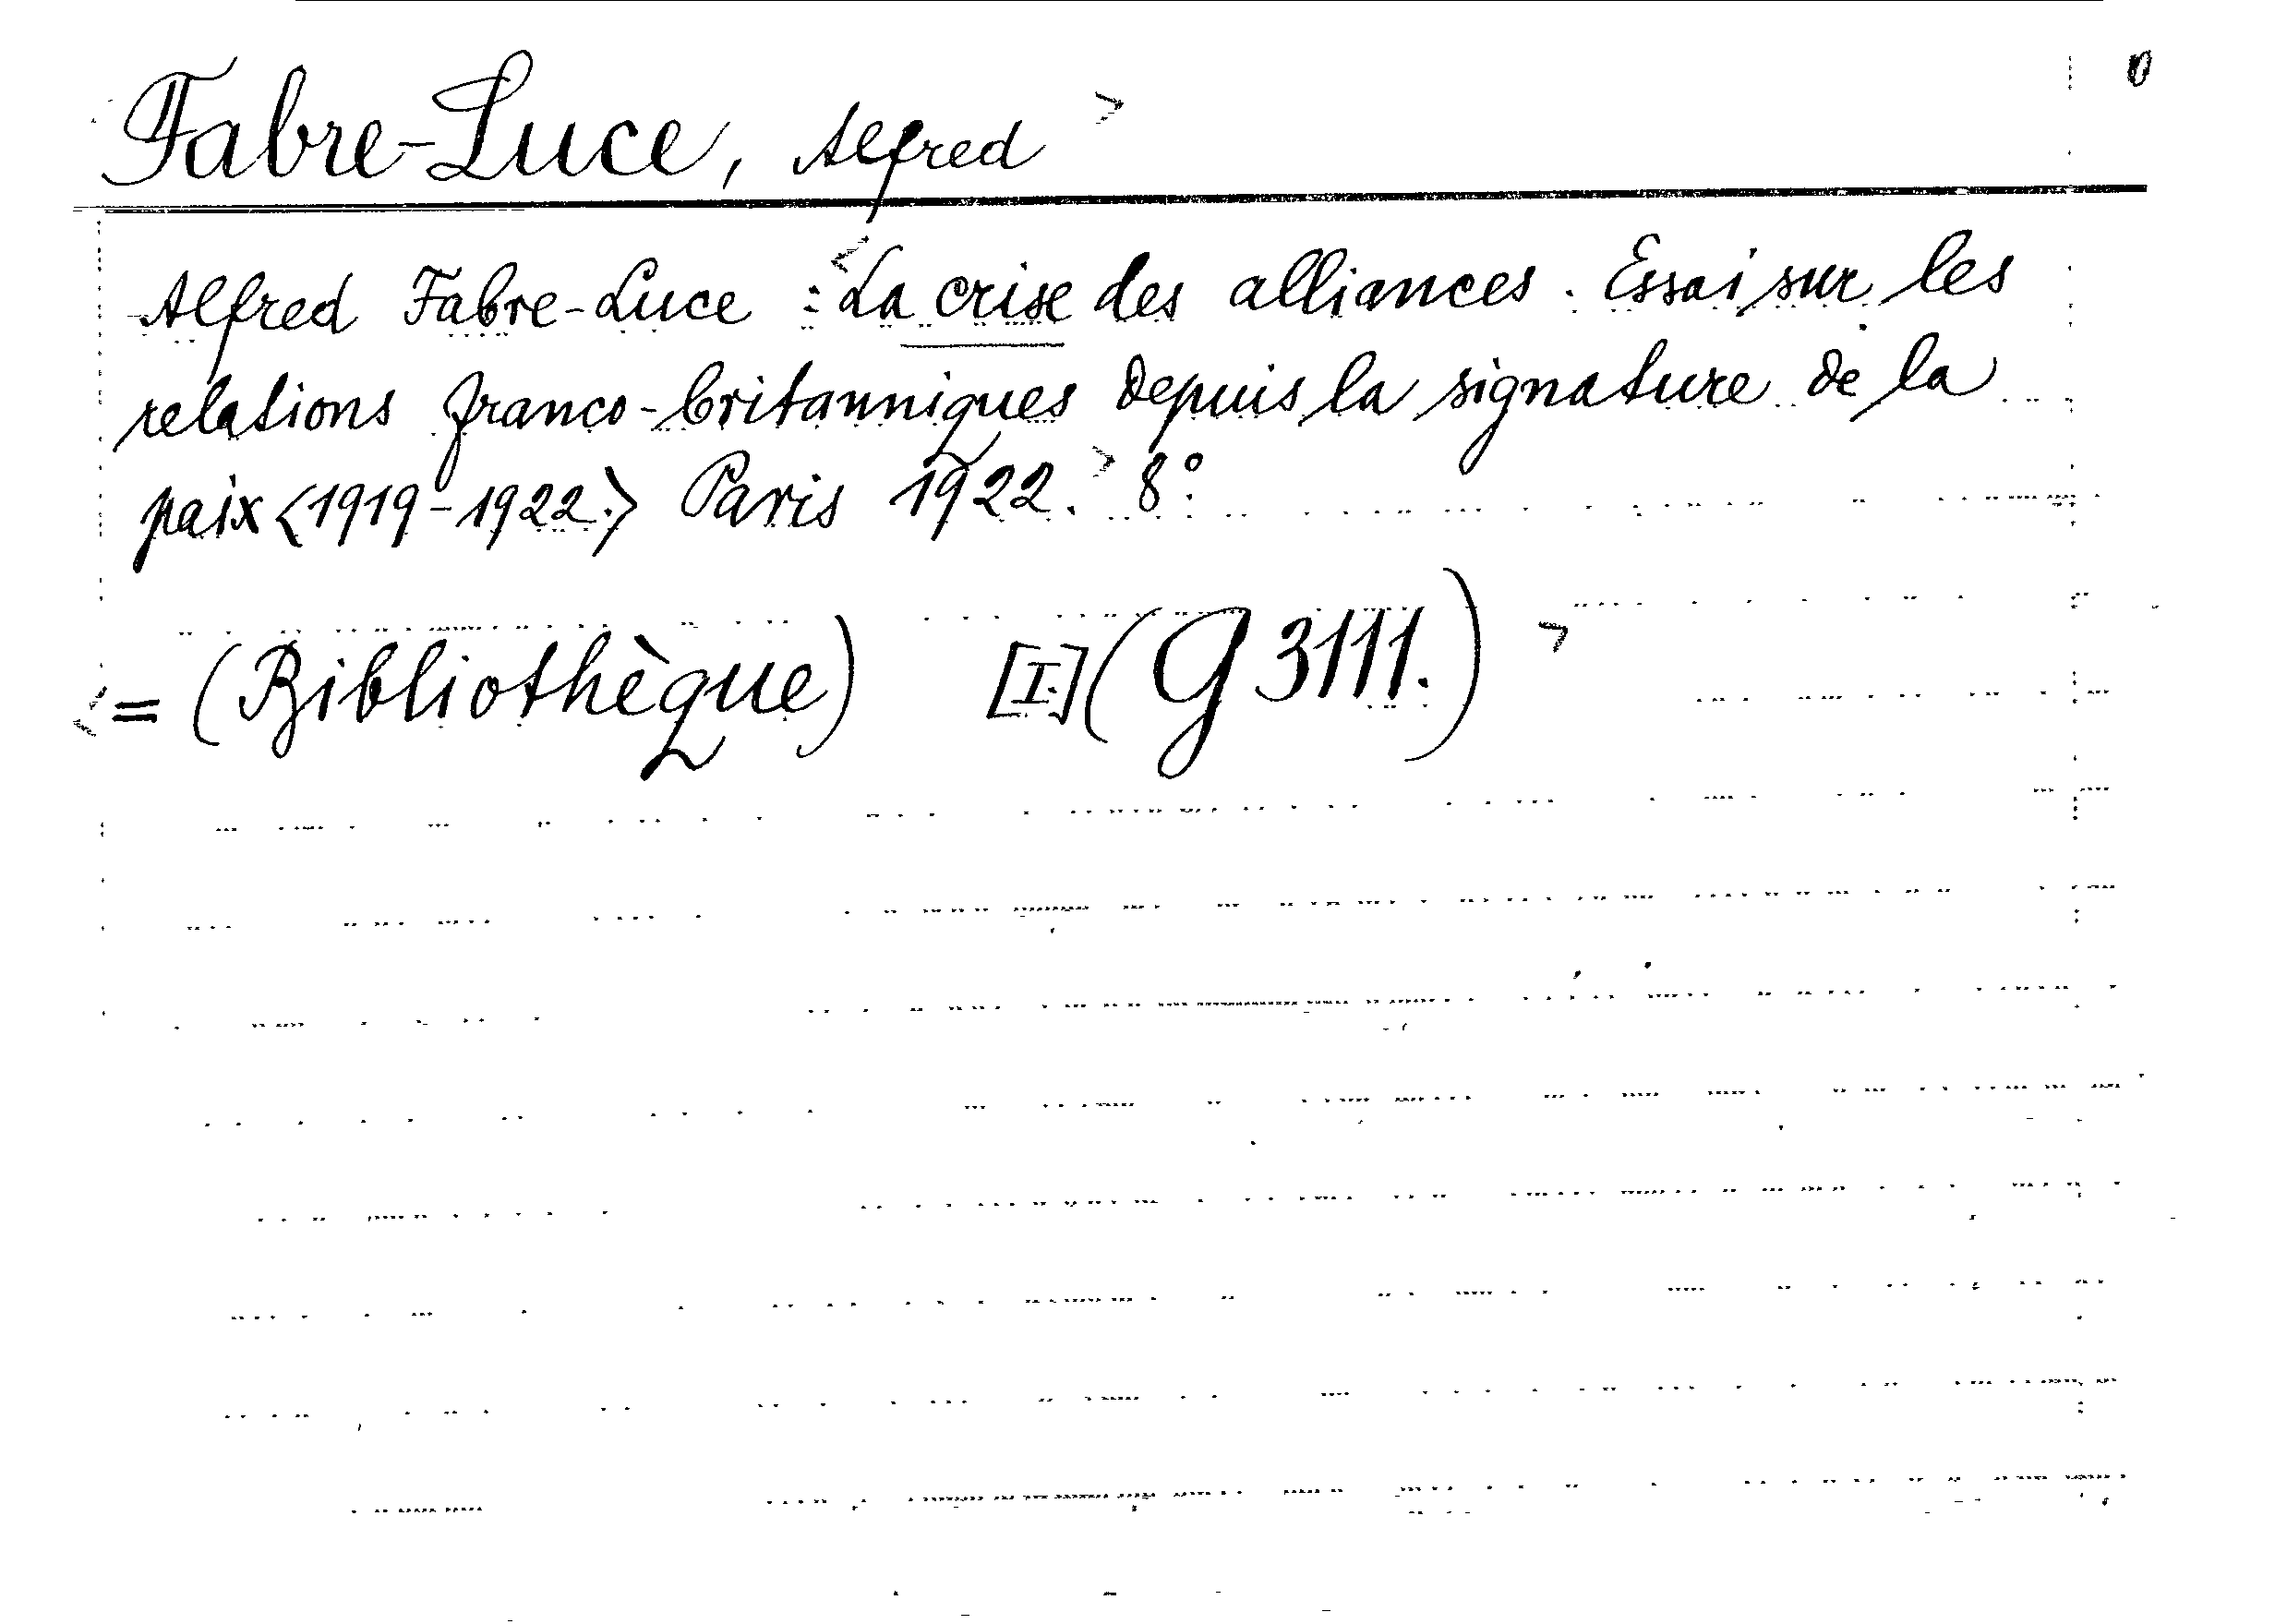 Fabre-Luce, Alfred >
Alfred Fabre-Luce : <La crise des alliances. Essai sur les
relations franco-britanniques depuis la signature de la
paix <1919-1922.> Paris 1922. > 8°.
<= (Bibliothèque) [I.] (G 3111.) >